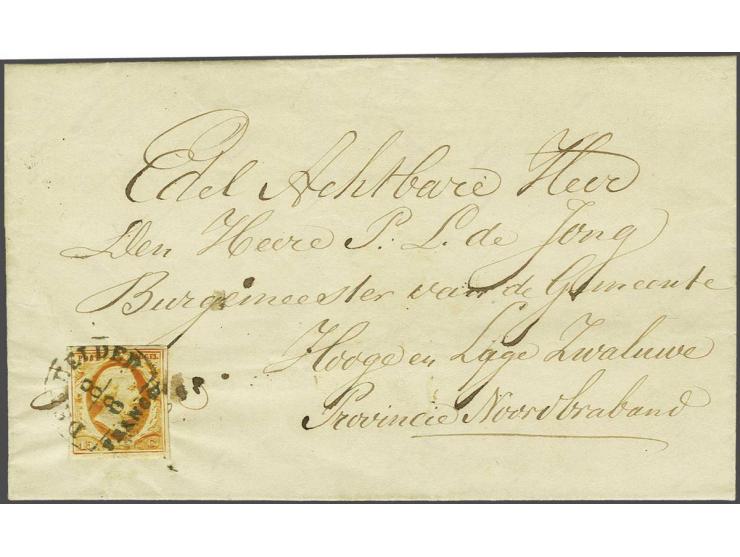 Edel Achtbare Heer
Den Heere P. L. de Jong
Burgemeester van de Gemeente
Hooge en Lage Zwaluwe
Provincie Noordbraband
DEN HELDER
8/8